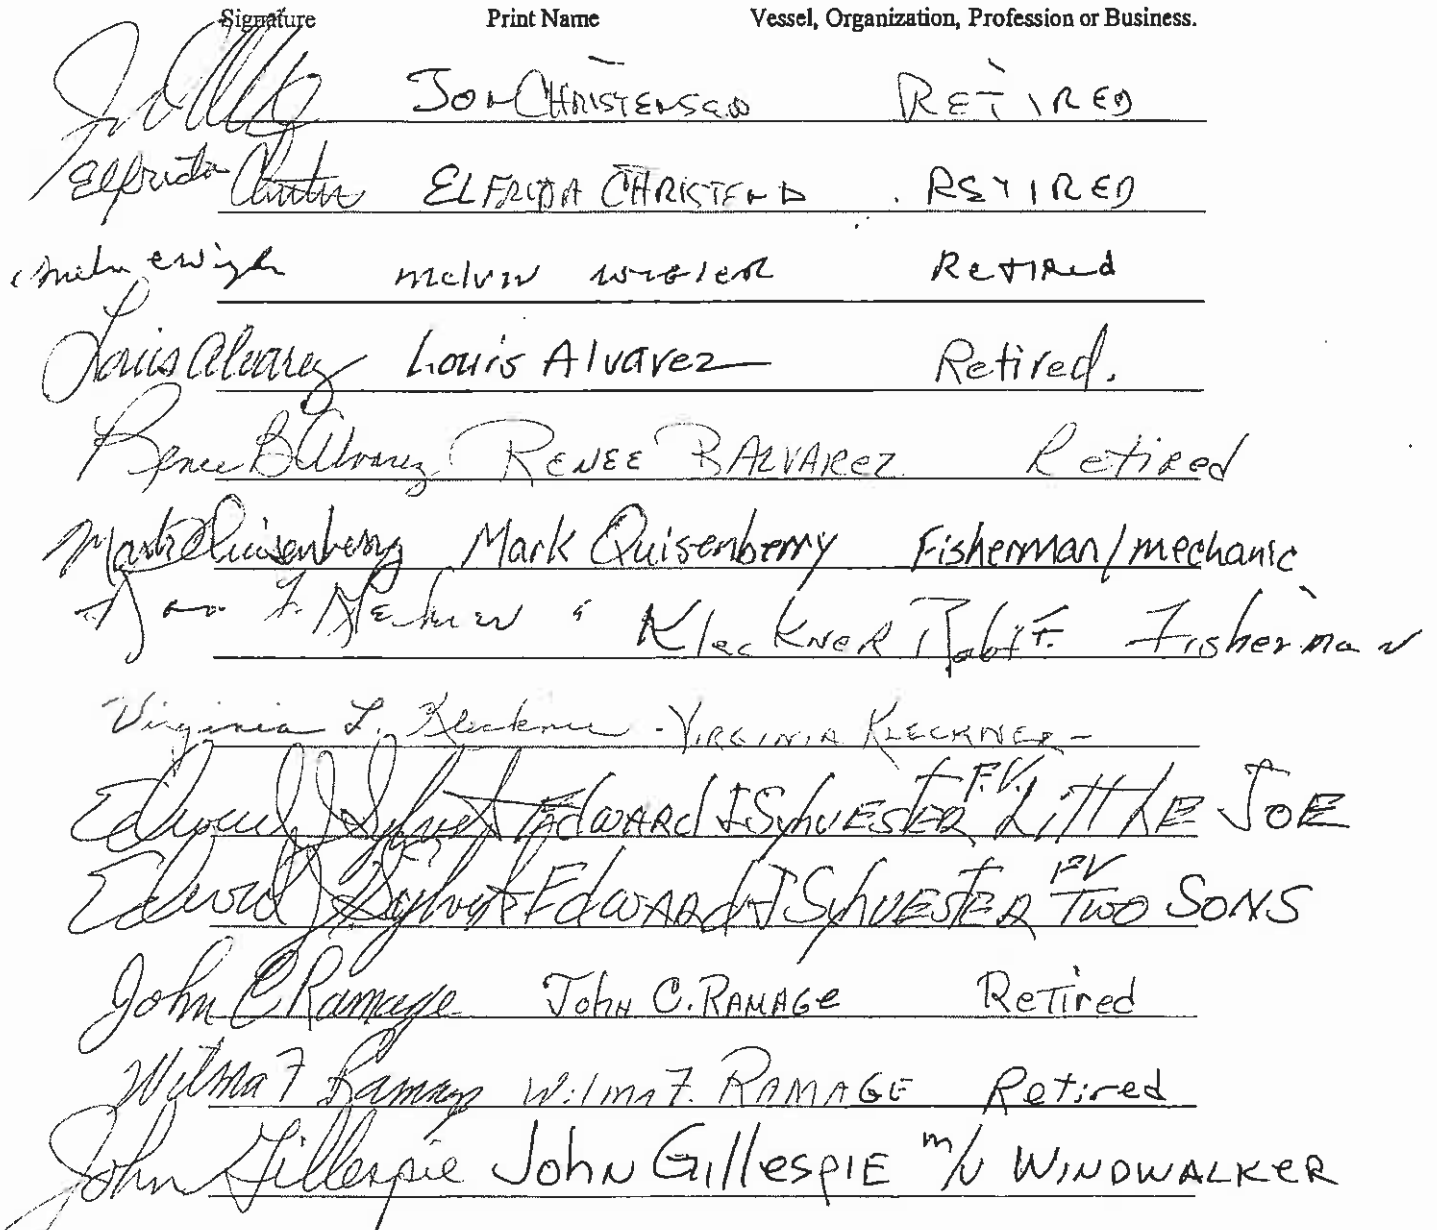 Signature Print Name Vessel, Organization, Profession or Business.
JON CHRISTENSEN RETIRED
Elfrida ELFRIDA CHRISTEND RETIRED
melvin wigler Retired
Louis Alvarez Louis Alvarez Retired.
Renee B Alvarez RENEE B ALVAREZ Retired
Mark Quisenberry Mark Quisenberry Fisherman/mechanic
F. Kleckner KlecKNER Robt F. Fisherman
Virginia L. Kleckner - VIRGINIA KLECKNER -
Edward J Sylvester EdwARd J SylvESTER F.V. LiTTLE JOE
Edward J Sylvester EdwARd J SylvESTER FV TWO SONS
John C Ramage John C. RAMAGe Retired
Wilma F Ramage Wilma F. RAMAGE Retired
John Gillespie JohN GillespIE m/v WINDWALKER